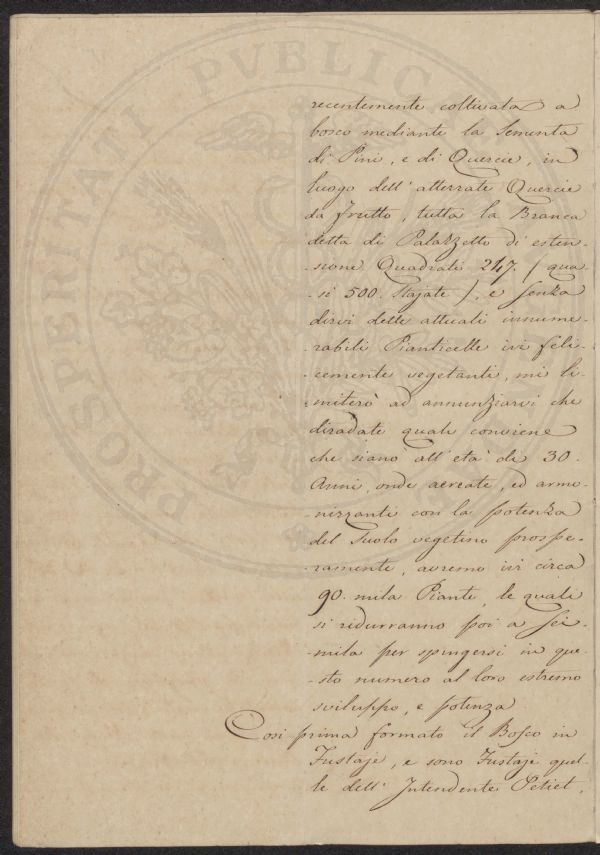 recentemente coltivata a
bosco mediante la Sementa
di Pini, e di Quercie, in
luogo dell' atterrate Quercie
da frutto, tutta la Branca
detta di Palazzetto di esten-
-sione Quadrati 247. (qua-
-si 500. Stajate), e senza
dirvi delle attuali innume-
-rabili Pianticelle ivi feli-
-cemente vegetanti, mi li-
-miterò ad annunziarvi che
diradate quali conviene
che siano all' età di 30.
Anni, onde aereate, ed armo-
nizzanti con la potenza
del Suolo vegetino prospe-
-ramente, avremo ivi circa
90. mila Piante, le quali
si ridurranno poi a sei-
-mila per spingersi in que-
-sto numero al loro estremo
sviluppo, e potenza.
Così prima formato il Bosco in
Fustaje, e sono Fustaje quel-
le dell' Intendente Petiet,
PROSPERITATI PVBLICA